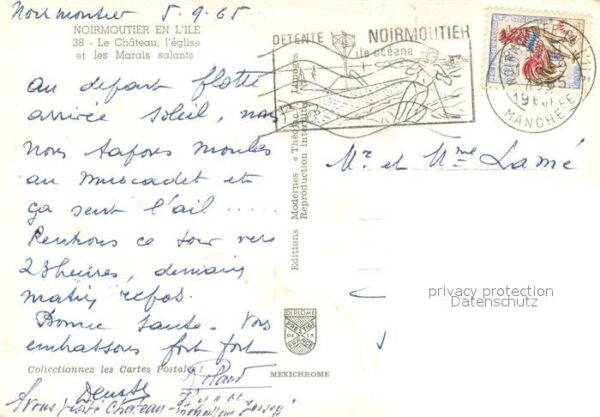 Noirmoutier 5.9.65
NOIRMOUTIER EN L'ILE
38 - Le Château, l'église
et les Marais salants
au depart flotte
arrivée soleil, nous
nous tapons moules
au muscadet et
ça sent l'ail .....
Rentrons ce soir vers
23 heures, demain
matin repos.
Bonne santé. Vous
embrassons fort fort
Collectionnez les Cartes Postales !
Roland
Avons visité Château
Editions Modernes « Théojac » Limoges
Reproduction Interdite
DIPLOME
PRESTIGE
DE LA
FRANCE
MEXICHROME
DETENTE
NOIRMOUTIER
île océane
Mr. et Mme Lamé
privacy protection
Datenschutz